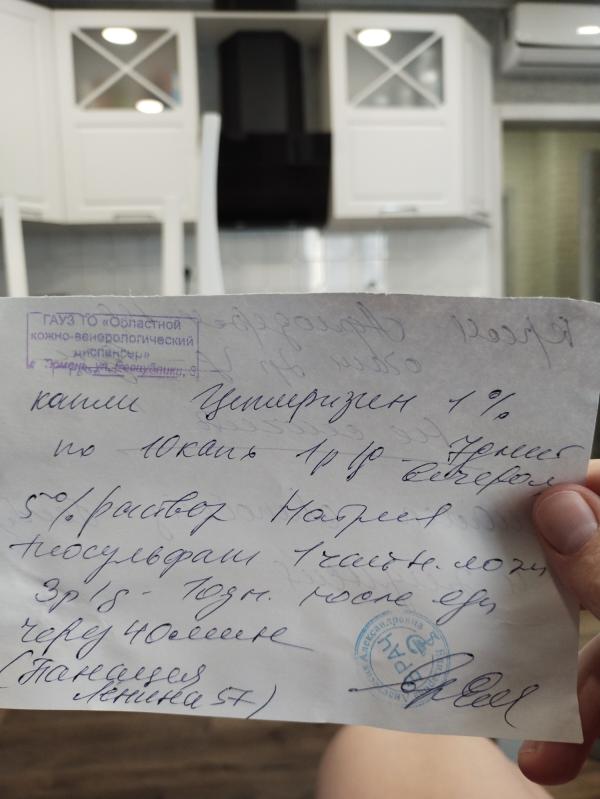 ГАУЗ ТО «Областной
кожно-венерологический
диспансер»
г. Тюмень, ул. Республики,
капли Цетиризин 1%
по 10 капь 1р/р 7дней
вечером
5% раствор Натрия
тиосульфат 1 чайн. ложк
3р/д - 10дн. после еды
через 40мин
(Панацея
Ленина 57)
Александровна
ВРАЧ